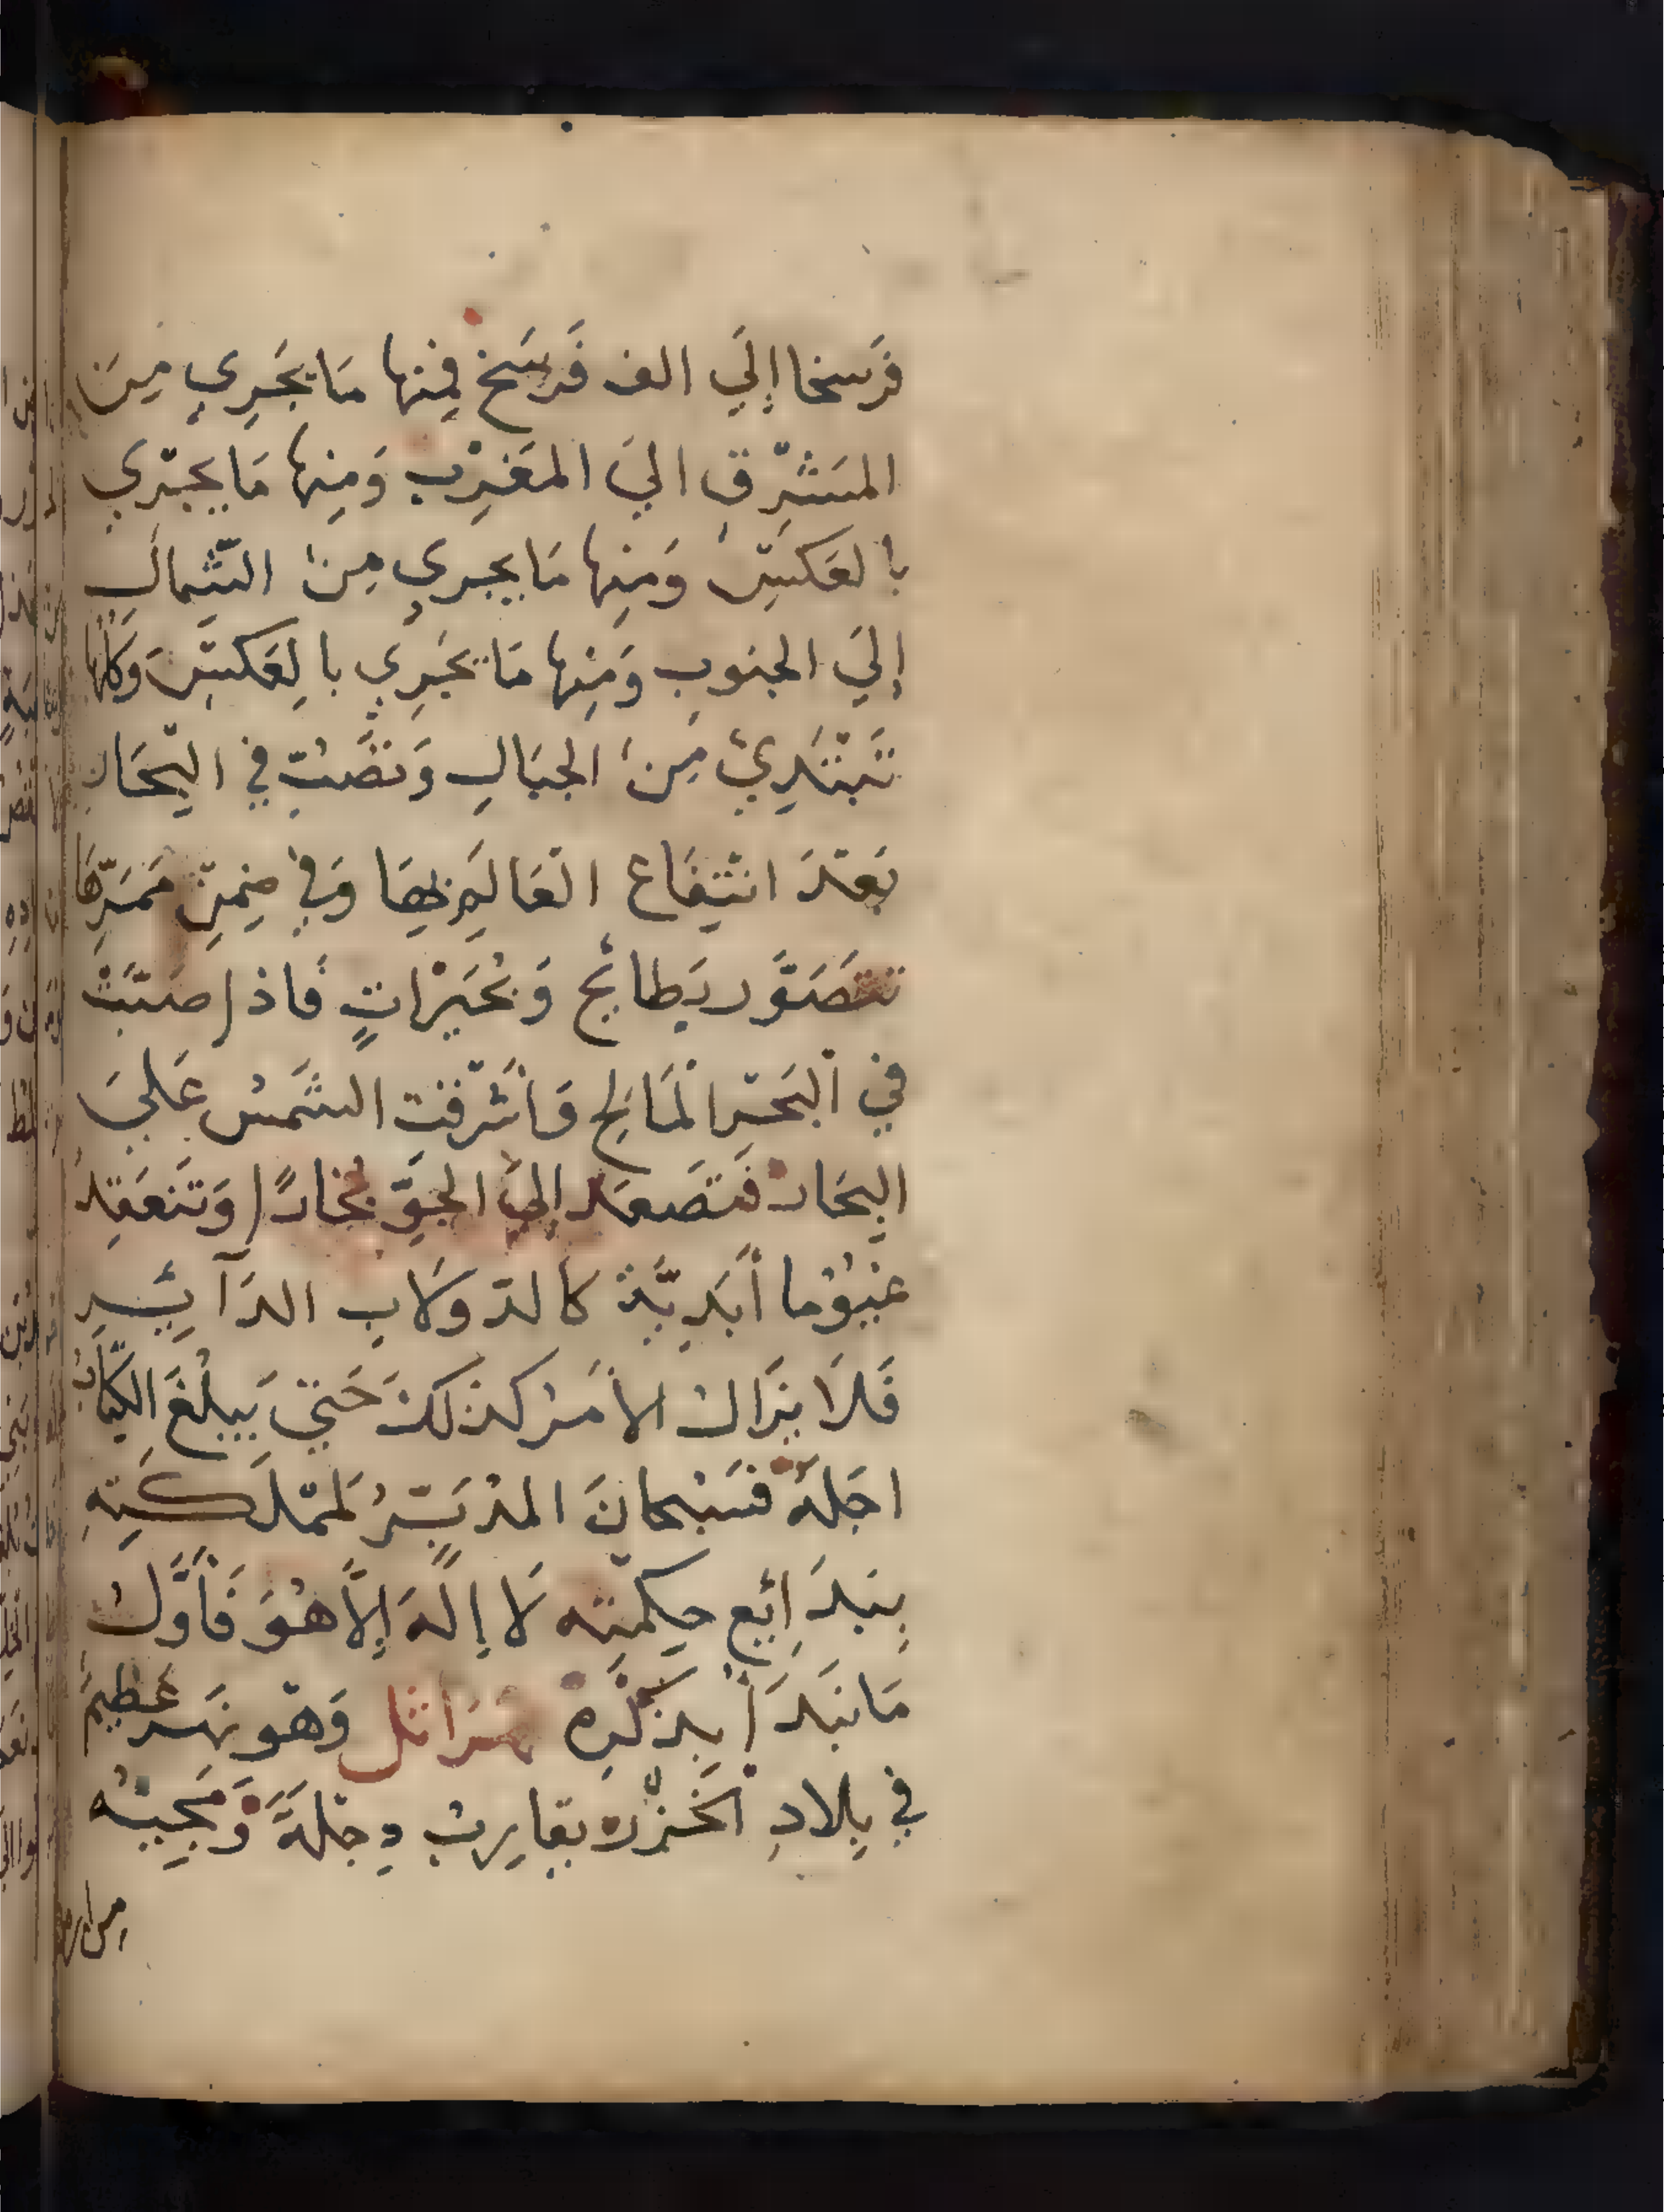 فَرسخا إلَي الف فَرسَخ فمِنها مَا يَجَرِي مِنَ
المشرِق اليَ المغرِب وَمِنها مَا يجرَي
بالعَكسِ وَمِنها مَا يجري مِن الشمالِ
إليَ الجنوب وَمِنها مَا يَجرِي بالعَكسِ وَكلها
تَبتَدِئ مِنَ الجبَالِ وَتصَب في البحَار
بَعدَ انتِفَاع العَالَم بِهَا وَفي ضِمنِ مَمَرِّهَا
تتصَوَّر بطائح وَبُحَيرَاتٍ فَاذا صَبَّتْ
في ألبَحر المَالح وَأشرقت الشَمس عَليَ
البِحَار فتَصعَد إلىَ الجوِّ بخارًا وَتَنعَقِد
غيُوُما أبَدِيَّة كالدّولَاب الدَآئِرِ
فَلَا يزَال الأمَر كذلكَ حَتيّ يَبلُغَ الكتَابُ
اجَلهُ فسَبحانَ المدُبّرُ لمَمْلَكَتِهِ
بِبَدَائع حِكمتِه لَا إلهَ إلَّا هُوَ فَأَوَّلُ
مَا نَبدَأ بِذكْرِهِ نهَر اتل وَهوَ نهَر عَظيم
في بِلادِ الخَزر يقارِب دِجلَةَ وَمَجِيئه
من ارض